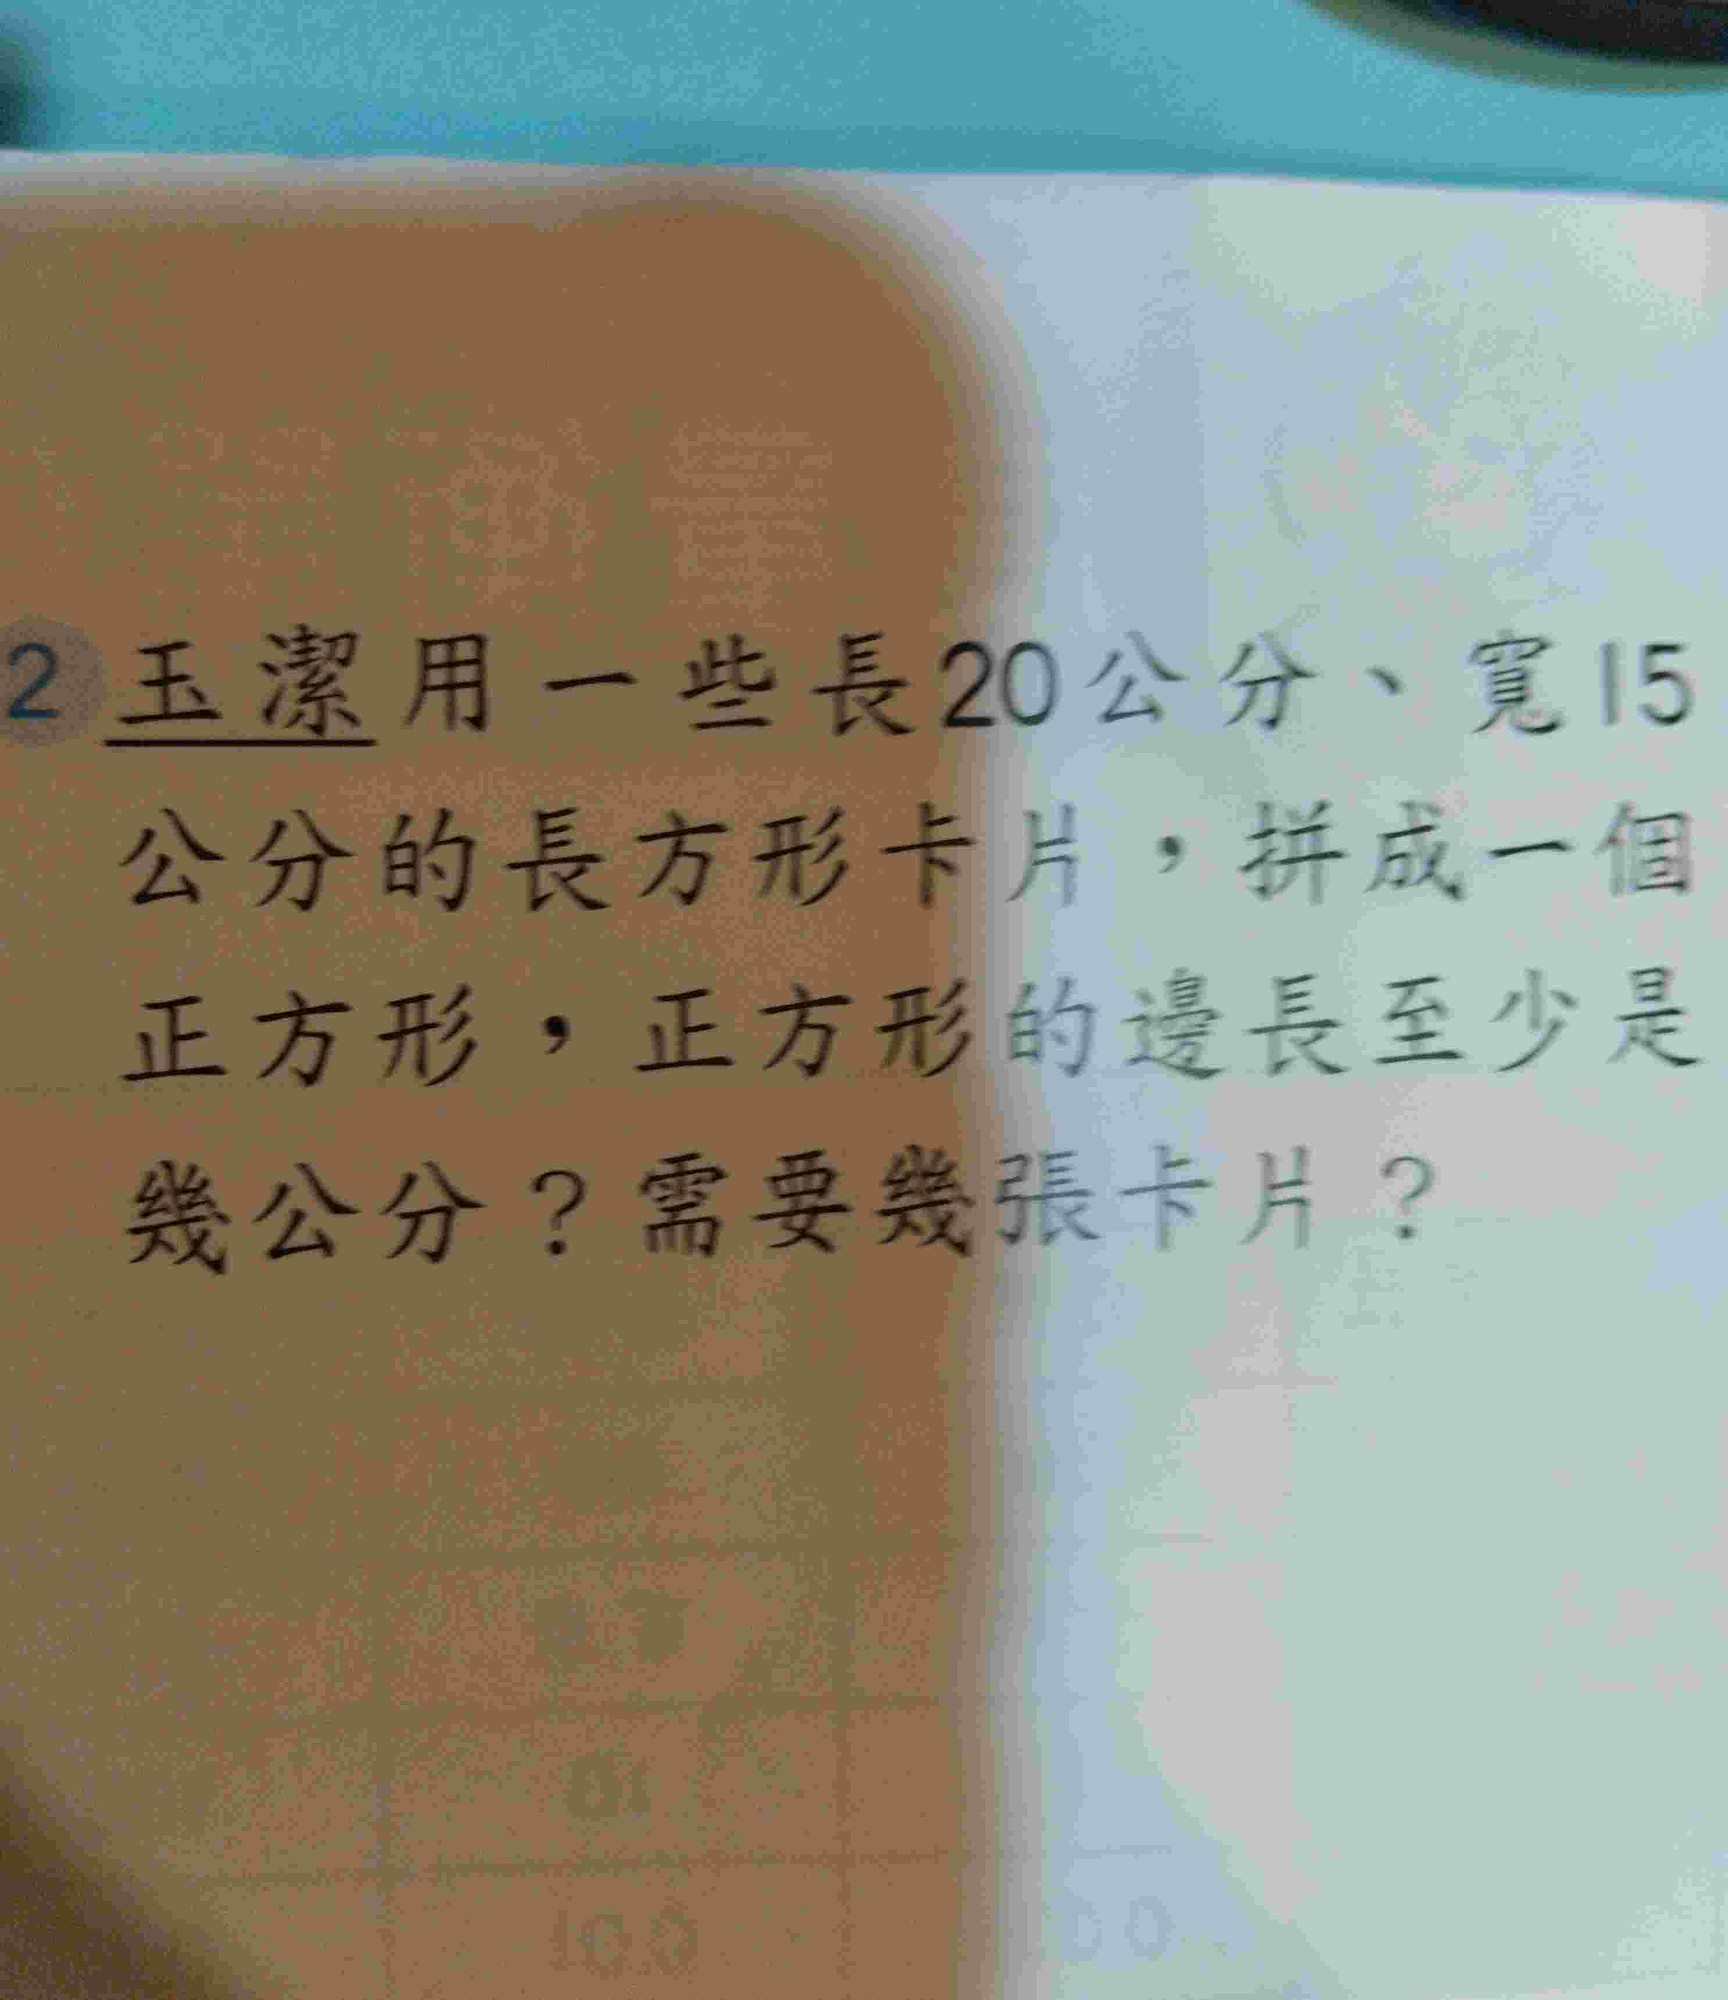 2 玉潔用一些長20公分、寬15
公分的長方形卡片，拼成一個
正方形，正方形的邊長至少是
幾公分？需要幾張卡片？